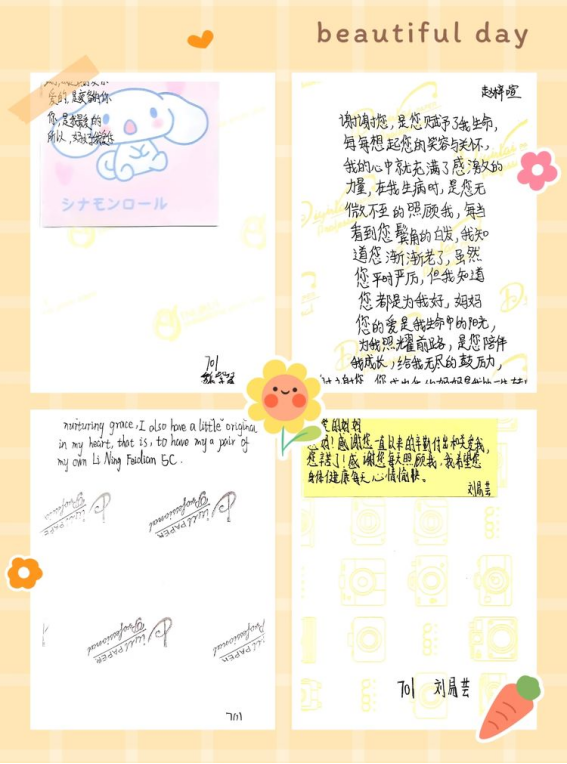 beautiful day
爱的,是爱着的你
你,是我最爱的
所以,
シナモンロール
701
赵梓暄
谢谢您,是您赋予了我生命,
每每想起您的笑容与关怀,
我的心中就充满了感激的
力量,在我生病时,是您无
微不至的照顾我,每当
看到您鬓角的白发,我知
道您渐渐老了,虽然
您平时严厉,但我知道
您都是为我好,妈妈
您的爱是我生命中的阳光,
为我照耀前路,是您陪伴
我成长,给我无尽的鼓励,
nurturing grace, I also have a little origina
in my heart, that is, to have my a pair of
my own Li Ning Feidian 5C.
PAPER
Professional
PAPER
Professional
PAPER
Professional
PAPER
Professional
701
爱的妈妈
妈!感谢您一直以来的辛勤付出和关爱我,
您辛苦了!感谢您每天照顾我,我希望您
身体健康每天心情愉快。
701